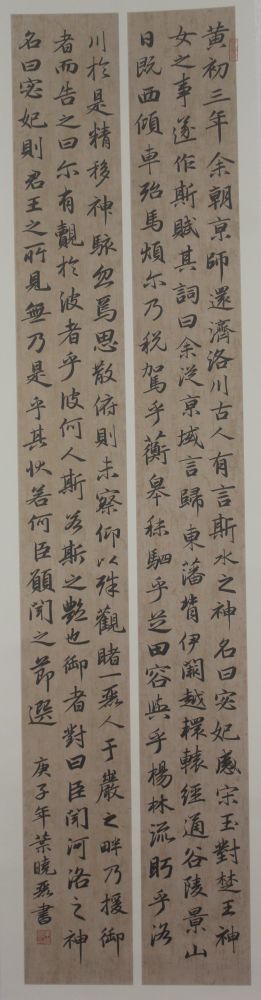 黄初三年余朝京師還濟洛川古人有言斯水之神名曰宓妃感宋玉對楚王神
女之事遂作斯賦其詞曰余從京域言歸東藩背伊闕越轘轅經通谷陵景山
日既西傾車殆馬煩尔乃税駕乎蘅皋秣駟乎芝田容與乎楊林流眄乎洛
川於是精移神駭忽焉思散俯則未察仰以殊觀睹一麗人于巖之畔乃援御
者而告之曰尔有覿於彼者乎彼何人斯若斯之艷也御者對曰臣聞河洛之神
名曰宓妃則君王之所見無乃是乎其狀若何臣願聞之 節選
庚子年葉曉燕書